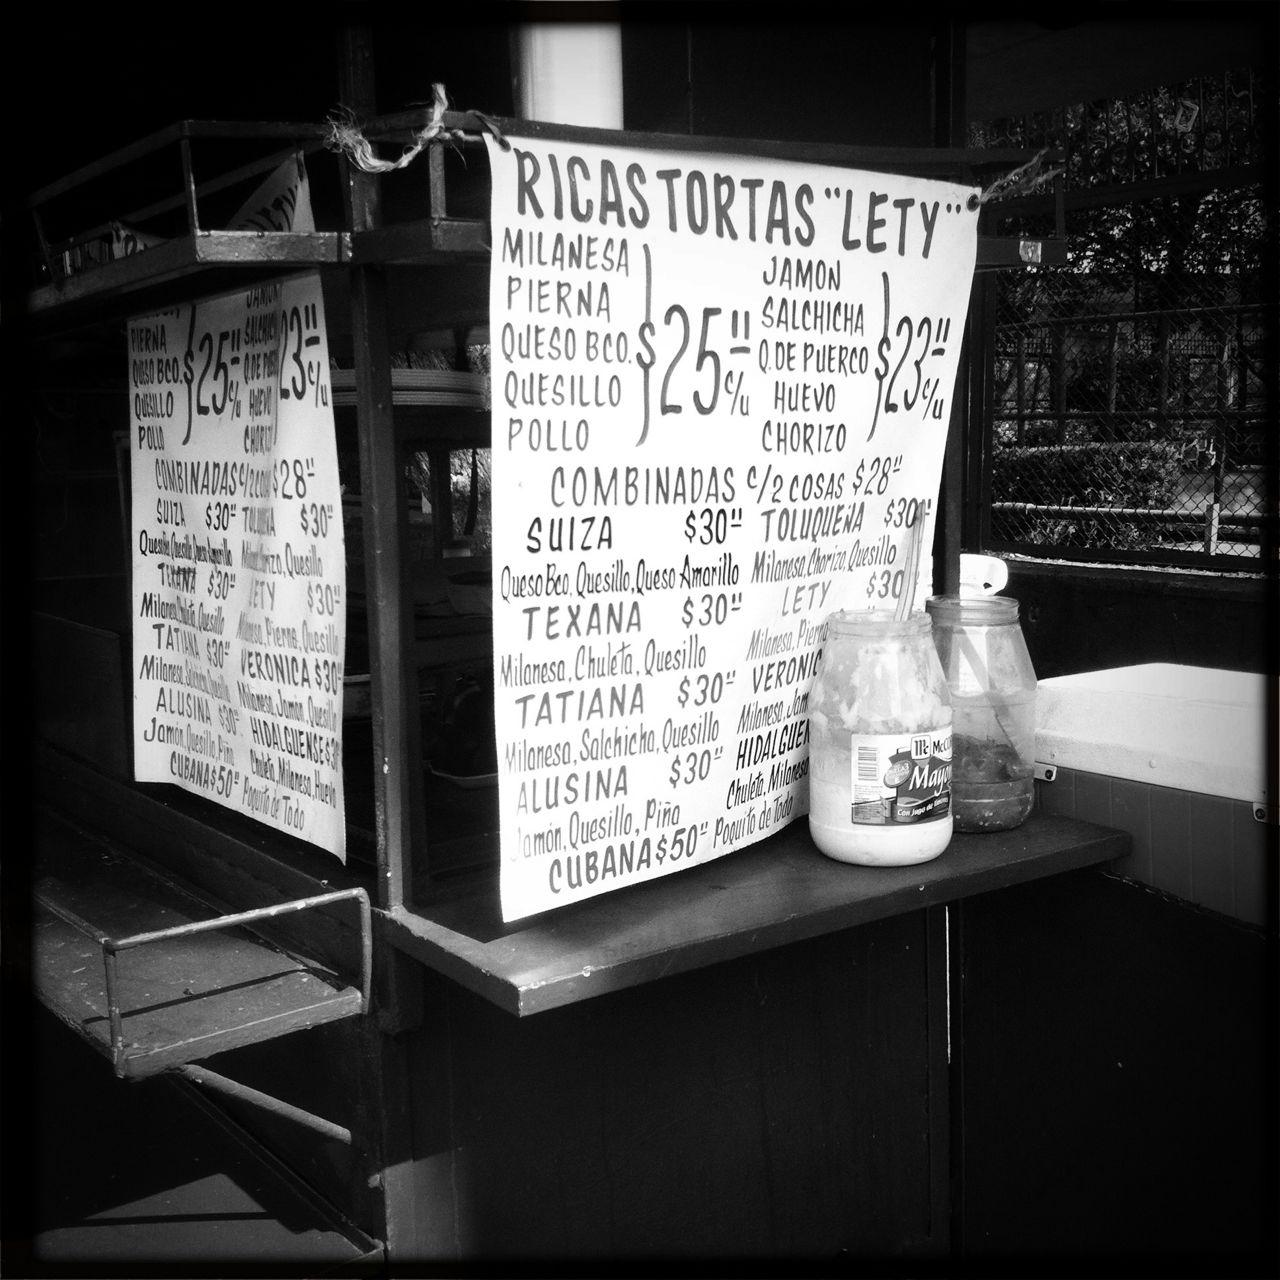 RICAS TORTAS "LETY"
MILANESA
PIERNA
QUESO BCO.
QUESILLO
POLLO
$25" c/u
JAMON
SALCHICHA
Q. DE PUERCO
HUEVO
CHORIZO
$23" c/u
COMBINADAS c/2 COSAS $28"
SUIZA $30"
Queso Bco, Quesillo, Queso Amarillo
TEXANA $30"
Milanesa, Chuleta, Quesillo
TATIANA $30"
Milanesa, Salchicha, Quesillo
ALUSINA $30"
Jamón, Quesillo, Piña
TOLUQUEÑA $30"
Milanesa, Chorizo, Quesillo
LETY $30
Milanesa, Pierna
VERONIC
Milanesa, Jam
HIDALGUEN
Chuleta, Milanesa
CUBANA $50" Poquito de Todo
PIERNA
QUESO BCO.
QUESILLO
POLLO
$25" c/u
JAMON
SALCHIC
Q. DE PUE
HUEVO
CHORIZO
23" c/u
COMBINADAS c/2 COSA $28"
SUIZA $30"
Queso Bco, Quesillo, Queso Amarillo
TEXANA $30"
Milanesa, Chuleta, Quesillo
TATIANA $30"
Milanesa, Salchicha, Quesillo
ALUSINA $30"
Jamón, Quesillo, Piña
$30"
Quesillo
LETY $30"
Milanesa, Pierna, Quesillo
VERONICA $30"
Milanesa, Jamón, Quesillo
HIDALGUENSE $3
Chuleta, Milanesa, Huevo
CUBANA $50" Poquito de Todo
Mc McC
Mayo
Con Jugo de